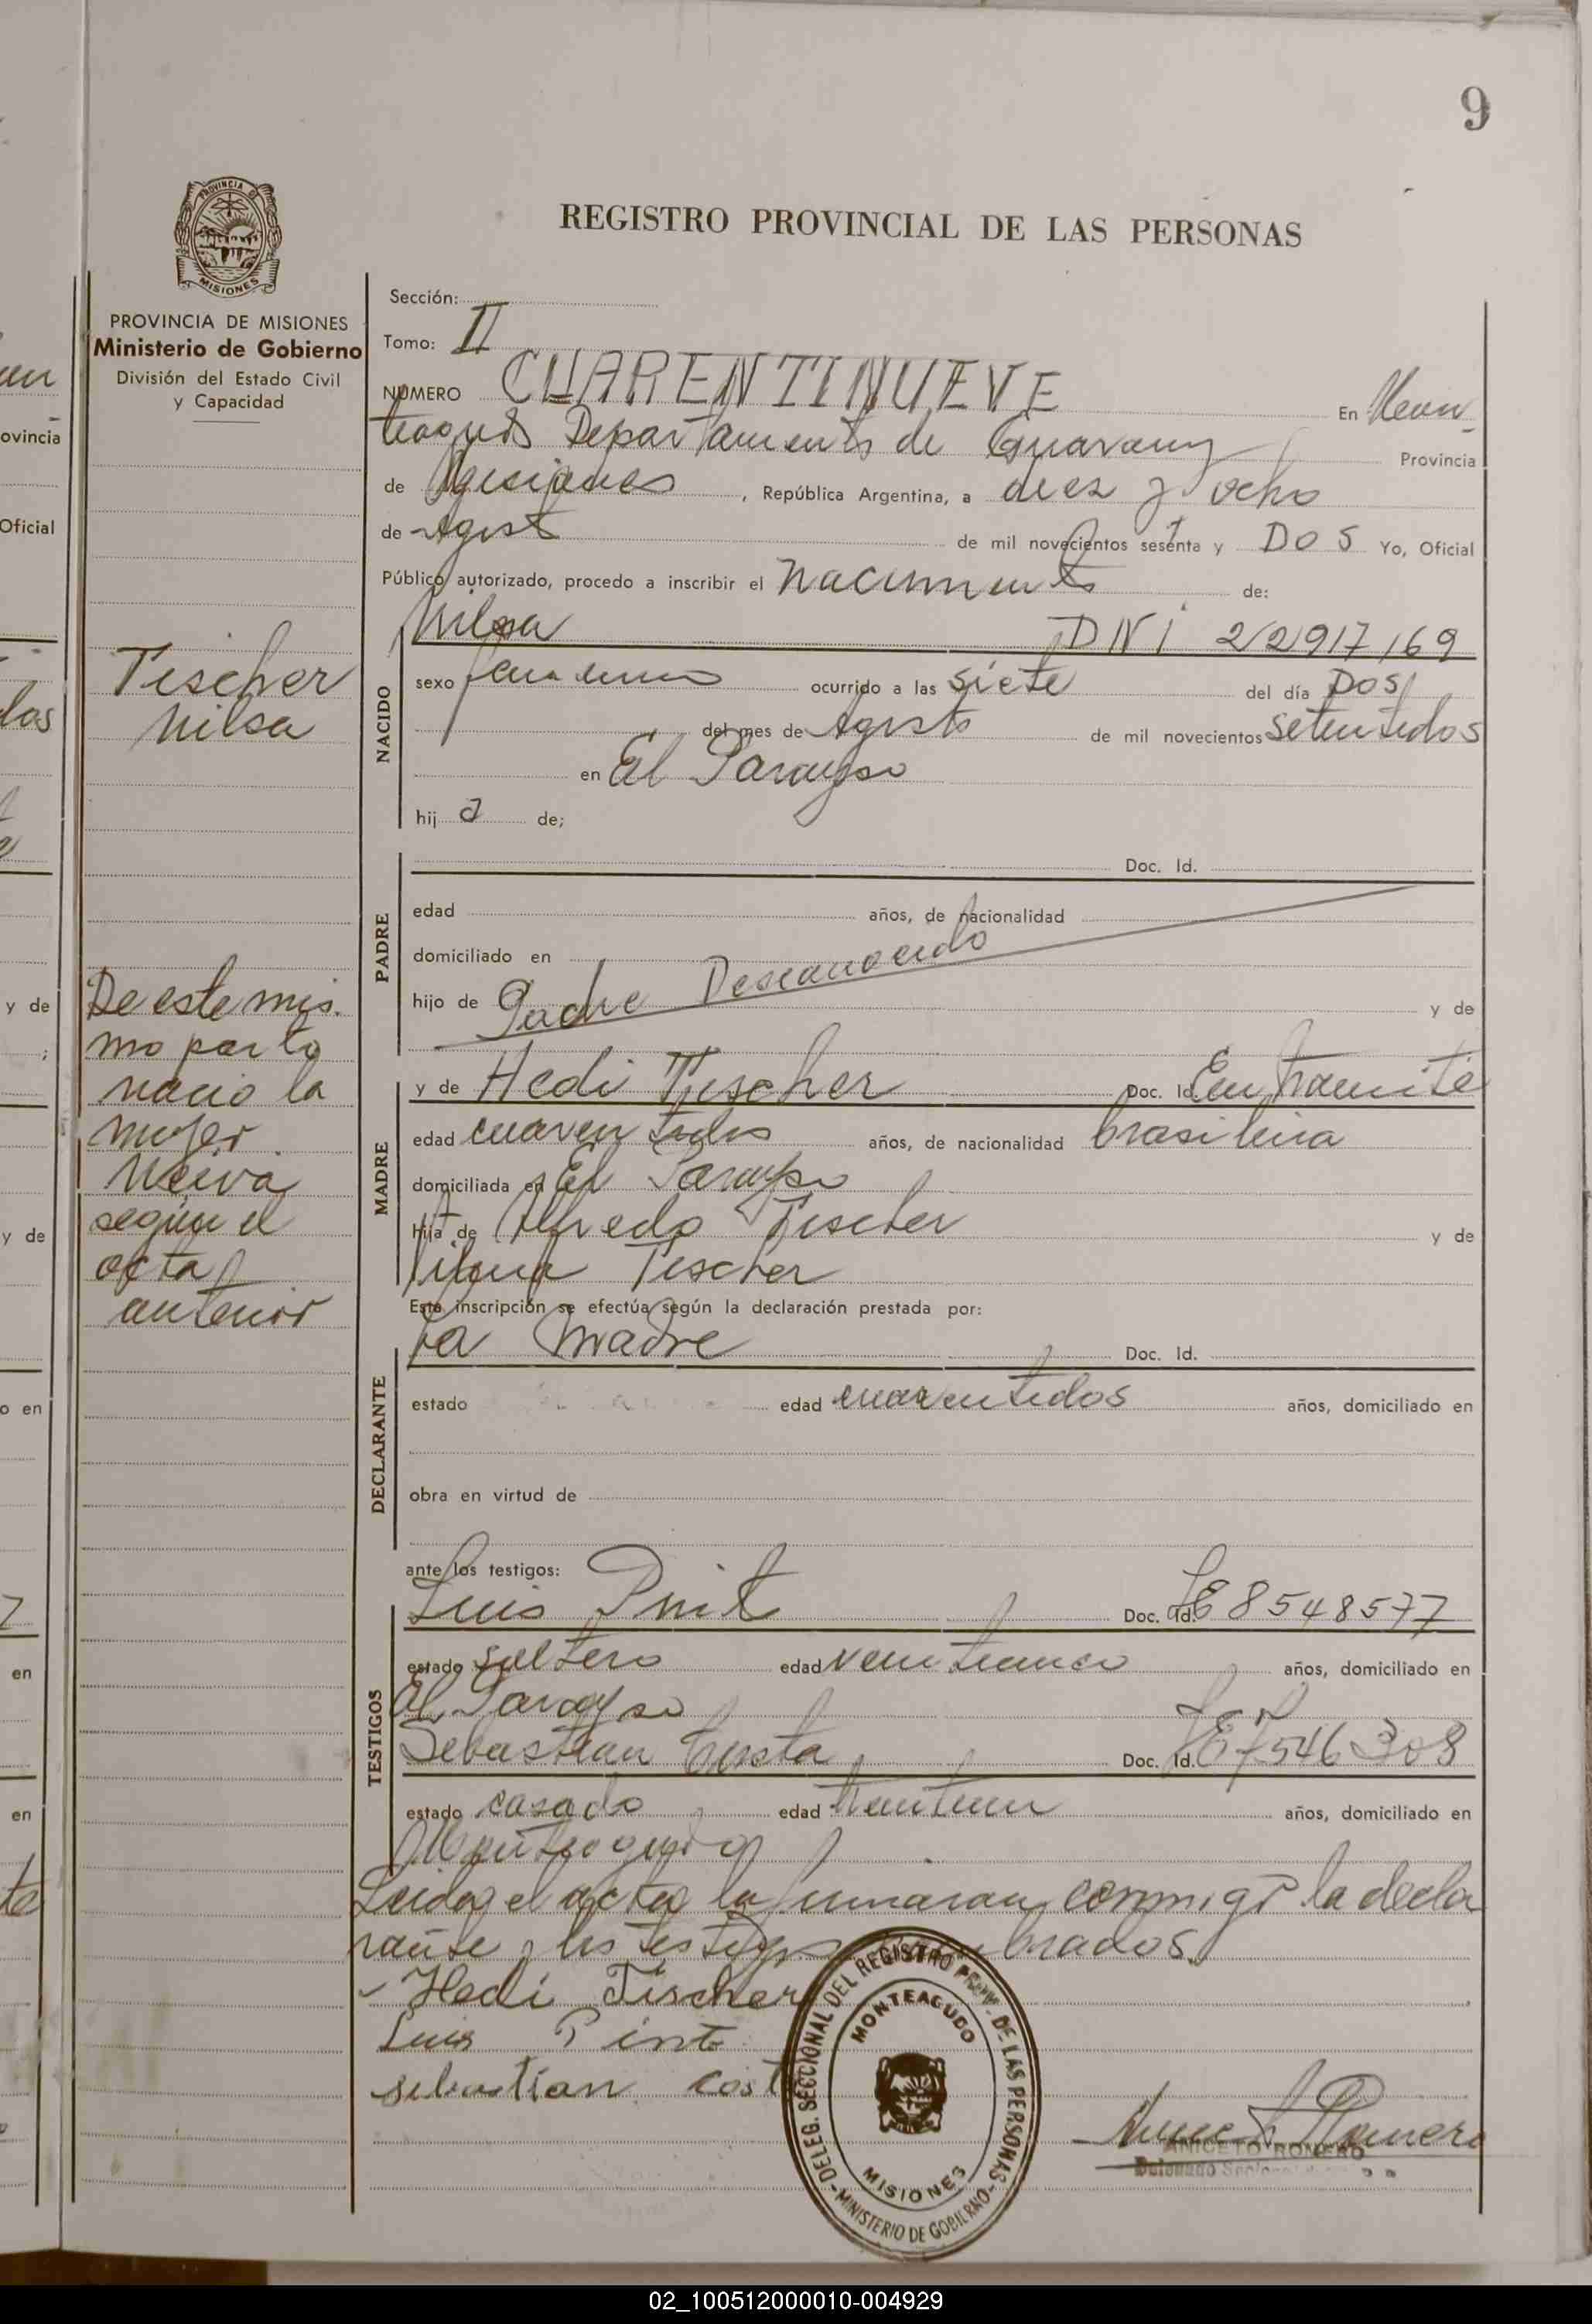 9
PROVINCIA DE
MISIONES
PROVINCIA DE MISIONES
Ministerio de Gobierno
División del Estado Civil
y Capacidad
REGISTRO PROVINCIAL DE LAS PERSONAS
Sección:
Tomo: II
NUMERO CUARENTINUEVE En Mon-
teagudo Departamento de Guarany Provincia
de Misiones, República Argentina, a diez y ocho
de Agosto de mil novecientos sesenta y DOS Yo, Oficial
Público autorizado, procedo a inscribir el Nacimiento de:
Nilsa DNI 22917169
Tischer
Nilsa
NACIDO
sexo femenino ocurrido a las siete del día DOS
del mes de Agosto de mil novecientos setentidos
en El Parayso
hij a de;
PADRE
Doc. Id.
edad años, de nacionalidad
domiciliado en
hijo de Padre Desconocido y de
De este mis-
mo parto
nacio la
mujer
Neiva
según el
acta
anterior
MADRE
y de Hedi Tischer Doc. Id. En tramite
edad cuarentidos años, de nacionalidad brasilera
domiciliada en El Parayso
hija de Alfredo Tischer y de
Tischer
Esta inscripción se efectúa según la declaración prestada por:
La Madre Doc. Id.
DECLARANTE
estado edad cuarentidos años, domiciliado en
obra en virtud de
ante los testigos:
TESTIGOS
Luis Pinto Doc. Id. LE 8548577
estado soltero edad veinticinco años, domiciliado en
El Parayso
Sebastian Costa Doc. Id. LE 7546308
estado casado edad treintiun años, domiciliado en
Monteagudo
Leida el acta la firmaran conmigo la decla
rante y los testigos nombrados
Hedi Tischer
Luis Pinto
sebastian cost
DELEG. SECCIONAL DEL REGISTRO PROV. DE LAS PERSONAS
MONTEAGUDO
MISIONES
MINISTERIO DE GOBIERNO
Aniceto Romero
ANICETO ROMERO
Delegado
02_100512000010-004929